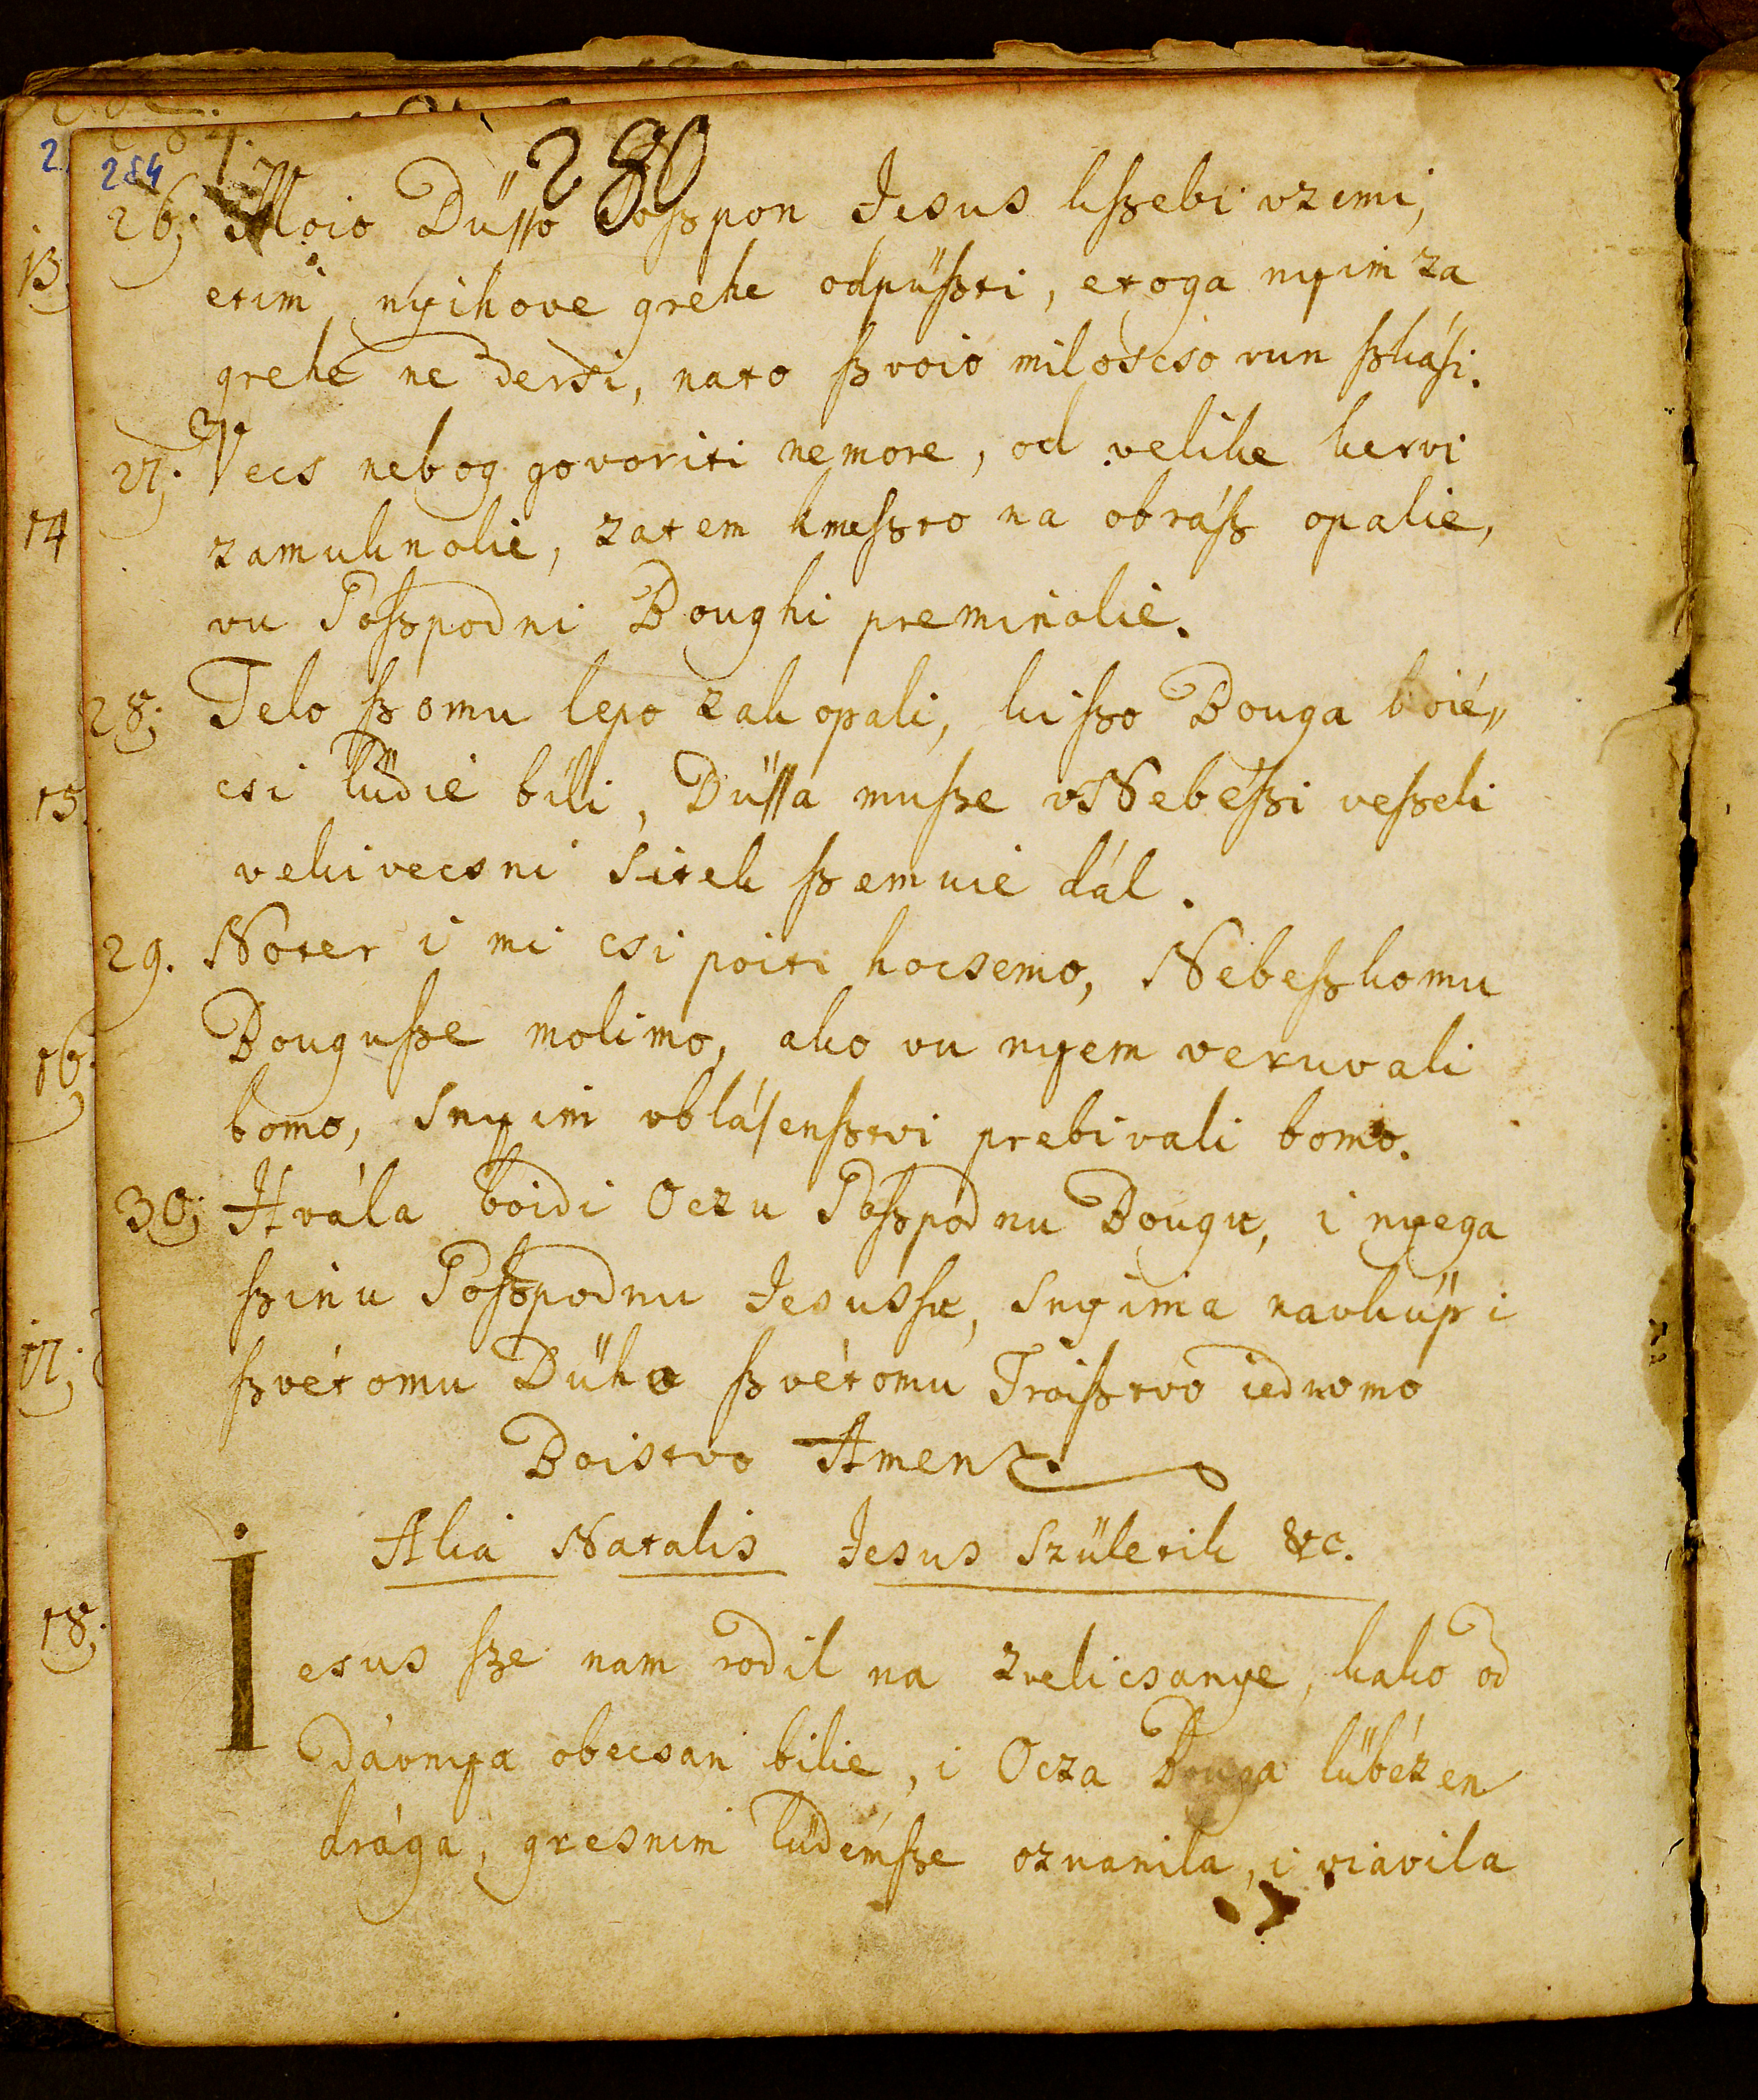 280
284
26; Moio Düsso Goßpon Jesus kßebi vzemi,
etim nyihove grehe odpüßti, etoga nyim za
grehe ne dersi, nato ßvoio miloscso vun ßkási.
27; Vecs nebog govoriti nemore, od velike kervi
zamuknolie, zatem kmeßto na obráß opalie,
vu Goßpodni Boughi preminolie.
28; Telo ßomu lepo zakopali, kißo Bouga boié„
csi lüdié bili, Düssa muße vNebeßi veßeli
vekivecsni sitek ßemuie dál.
29. Noter i mi csi poiti hocsemo, Nebeßkomu
Bougußse molimo, ako vu nyem veruvali
bomo, snyim vblásenßtvi prebivali bomo.
30; Hvála boidi Oczu Goßpodnu Bougu, i nyega
ßinu Goßpodnu Jesussu, snyima navküp i
ßvétomu Dühu ßvétomu Troißtvo iednomo
Boistvo Amen.
Alia Natalis Jesus Születik &c.
Iesus ße nam rodil na zvelicsanye, kako od
dávnya obecsan bilie, i Ocza Bouga lübézen
drága, gresnim lüdémße oznanila, i viavila
13
14
15.
16;
17;
18;